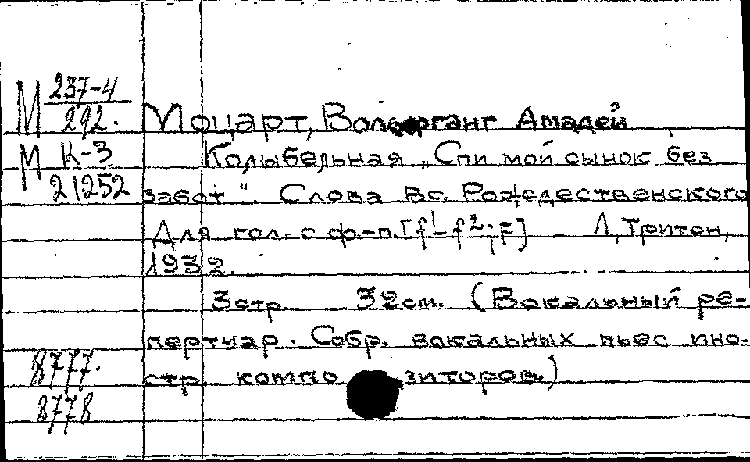 М 237-4
292.
М К-3
21252
Моцарт, Вольфганг Амадей
Колыбельная „Спи мой сынок без
забот". Слова Вс. Рождественского
Для гол. с ф-п. [f¹-f²; F] Л, Тритон,
1932.
3 стр. 32 см. (Вокальный ре-
пертуар. Собр. вокальных пьес ино-
стр. компо зиторов.)
8777.
8778